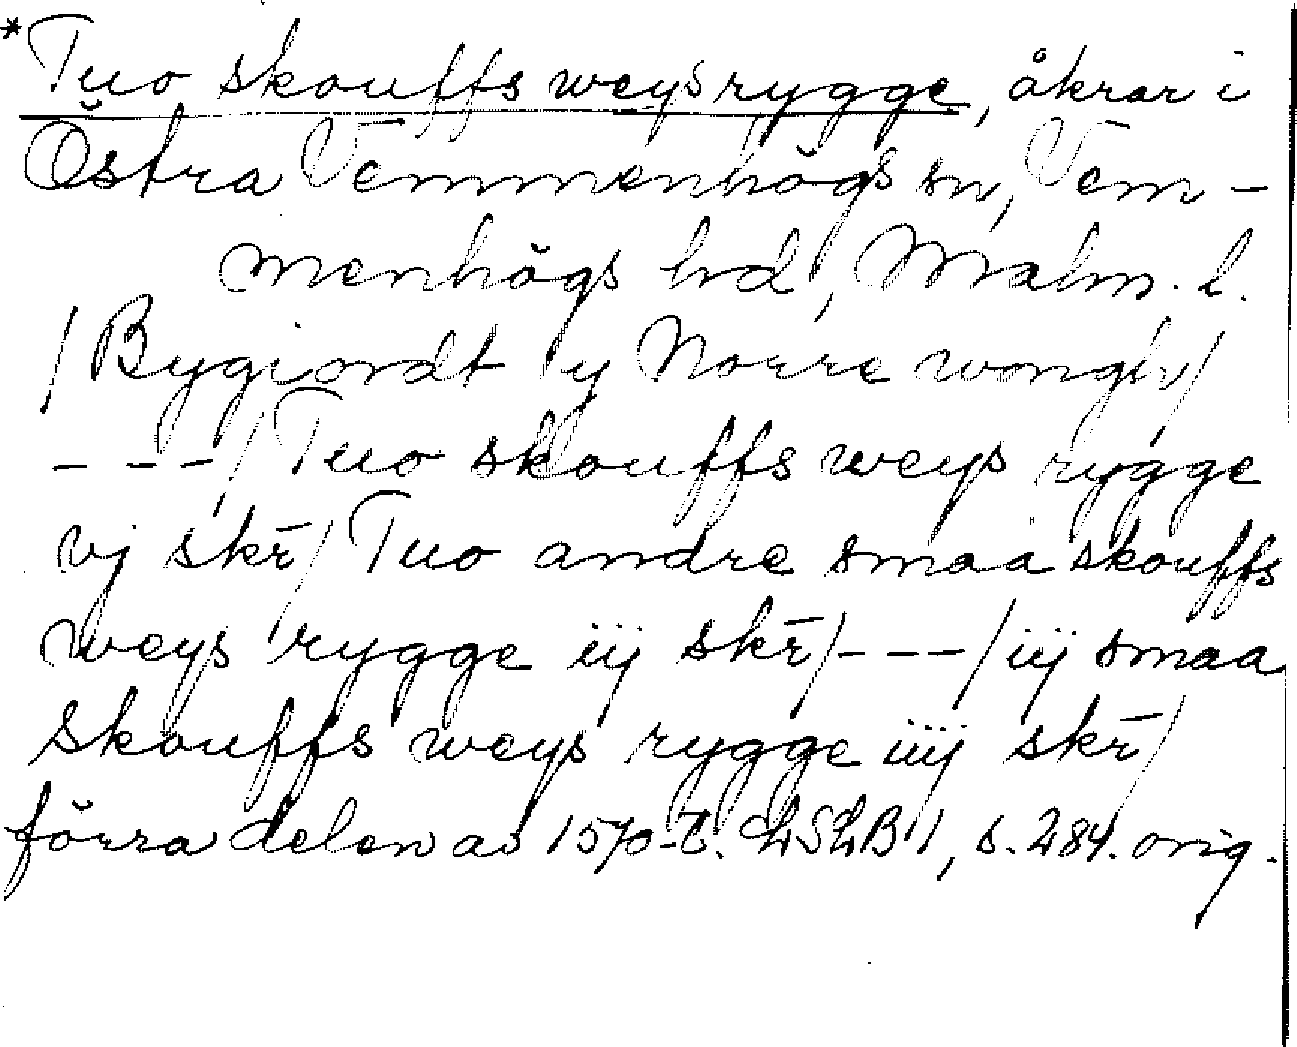 *Tuo skouffs weys rygge, åkrar i
Östra Vemmenhögs sn, Vem-
menhögs hd, Malm. l.
/Bygiordt y Norre wongh/
---/Tuo skouffs weys rygge
vj skr̄/ Tuo andre smaa skouffs
weys rygge iij skr̄/---/iij smaa
skouffs weys rygge iiij skr̄/
förra delen av 1570-t. LSLB 1, s. 284. orig.